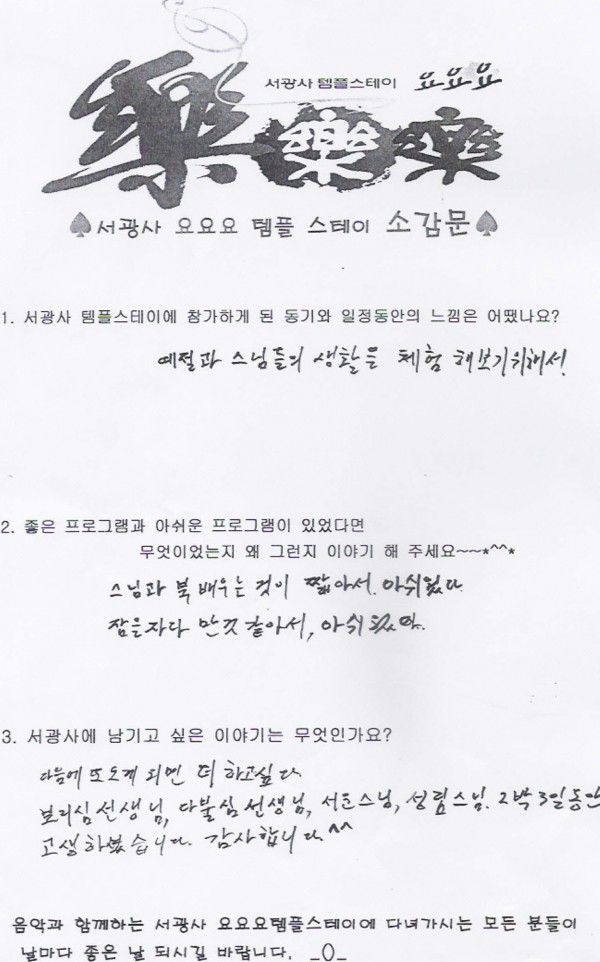 서광사 템플스테이 요요요
樂樂樂
♠서광사 요요요 템플 스테이 소감문♠
1. 서광사 템플스테이에 참가하게 된 동기와 일정동안의 느낌은 어땠나요?
예절과 스님들의 생활을 체험 해보기위해서!
2. 좋은 프로그램과 아쉬운 프로그램이 있었다면
무엇이었는지 왜 그런지 이야기 해 주세요~~*^^*
스님과 북 배우는 것이 짧아서. 아쉬웠다.
잠을자다 만것 같아서, 아쉬웠다.
3. 서광사에 남기고 싶은 이야기는 무엇인가요?
다음에 또오게 되면 더 하고싶다.
보리심선생님, 다불심선생님, 서운스님, 성림스님. 2박 3일동안
고생하셨습니다. 감사합니다.^^
음악과 함께하는 서광사 요요요템플스테이에 다녀가시는 모든 분들이
날마다 좋은 날 되시길 바랍니다. _()_